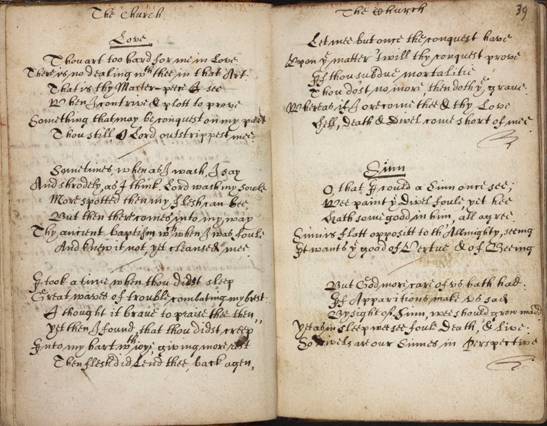 The Church
Love
Thou art too hard for me in Love
There is no dealing wth thee in that Art
That is thy Master-peece I see
When I contrive & plott to prove
Something that may be conquest on my part
Thou still O Lord outstrippest mee.
Sometimes, when as I wash, I say
And shrodely, as I think, Lord wash my soule
More spotted then my flesh can bee
But then there comes into my way
Thy ancient baptism wch when I was foule
And knew it not yet cleansed mee
I took a time when thou didst sleep
Great waves of trouble combating my brest
I thought it brave to praise thee then,
Yet then I found, that thou didst creep
Into my hart wth ioye, giving more rest
Then flesh did lend thee, back agen.
The Church
39
Let mee but once the conquest have
Upon ye matter 'twill thy conquest prove
If thou subdue mortalitie
Thou dost no more, then doth ye grave
Whereas if I orecome thee & thy Love
Hell, Death & Divel come short of mee.
Sinn
O, that I could a Sinn once see;
Wee paint ye divel foule, yet hee
Hath some good in him, all agree.
Sinn is flatt opposite to th' Almighty, seeing
It wants ye good of Vertue & of Beeing
But God more care of us hath had:
If Apparitions make us sad
By sight of Sinn, we should grow madd
Yet as in sleep we see foule Death, & live:
So Divels are our Sinnes in Perspective